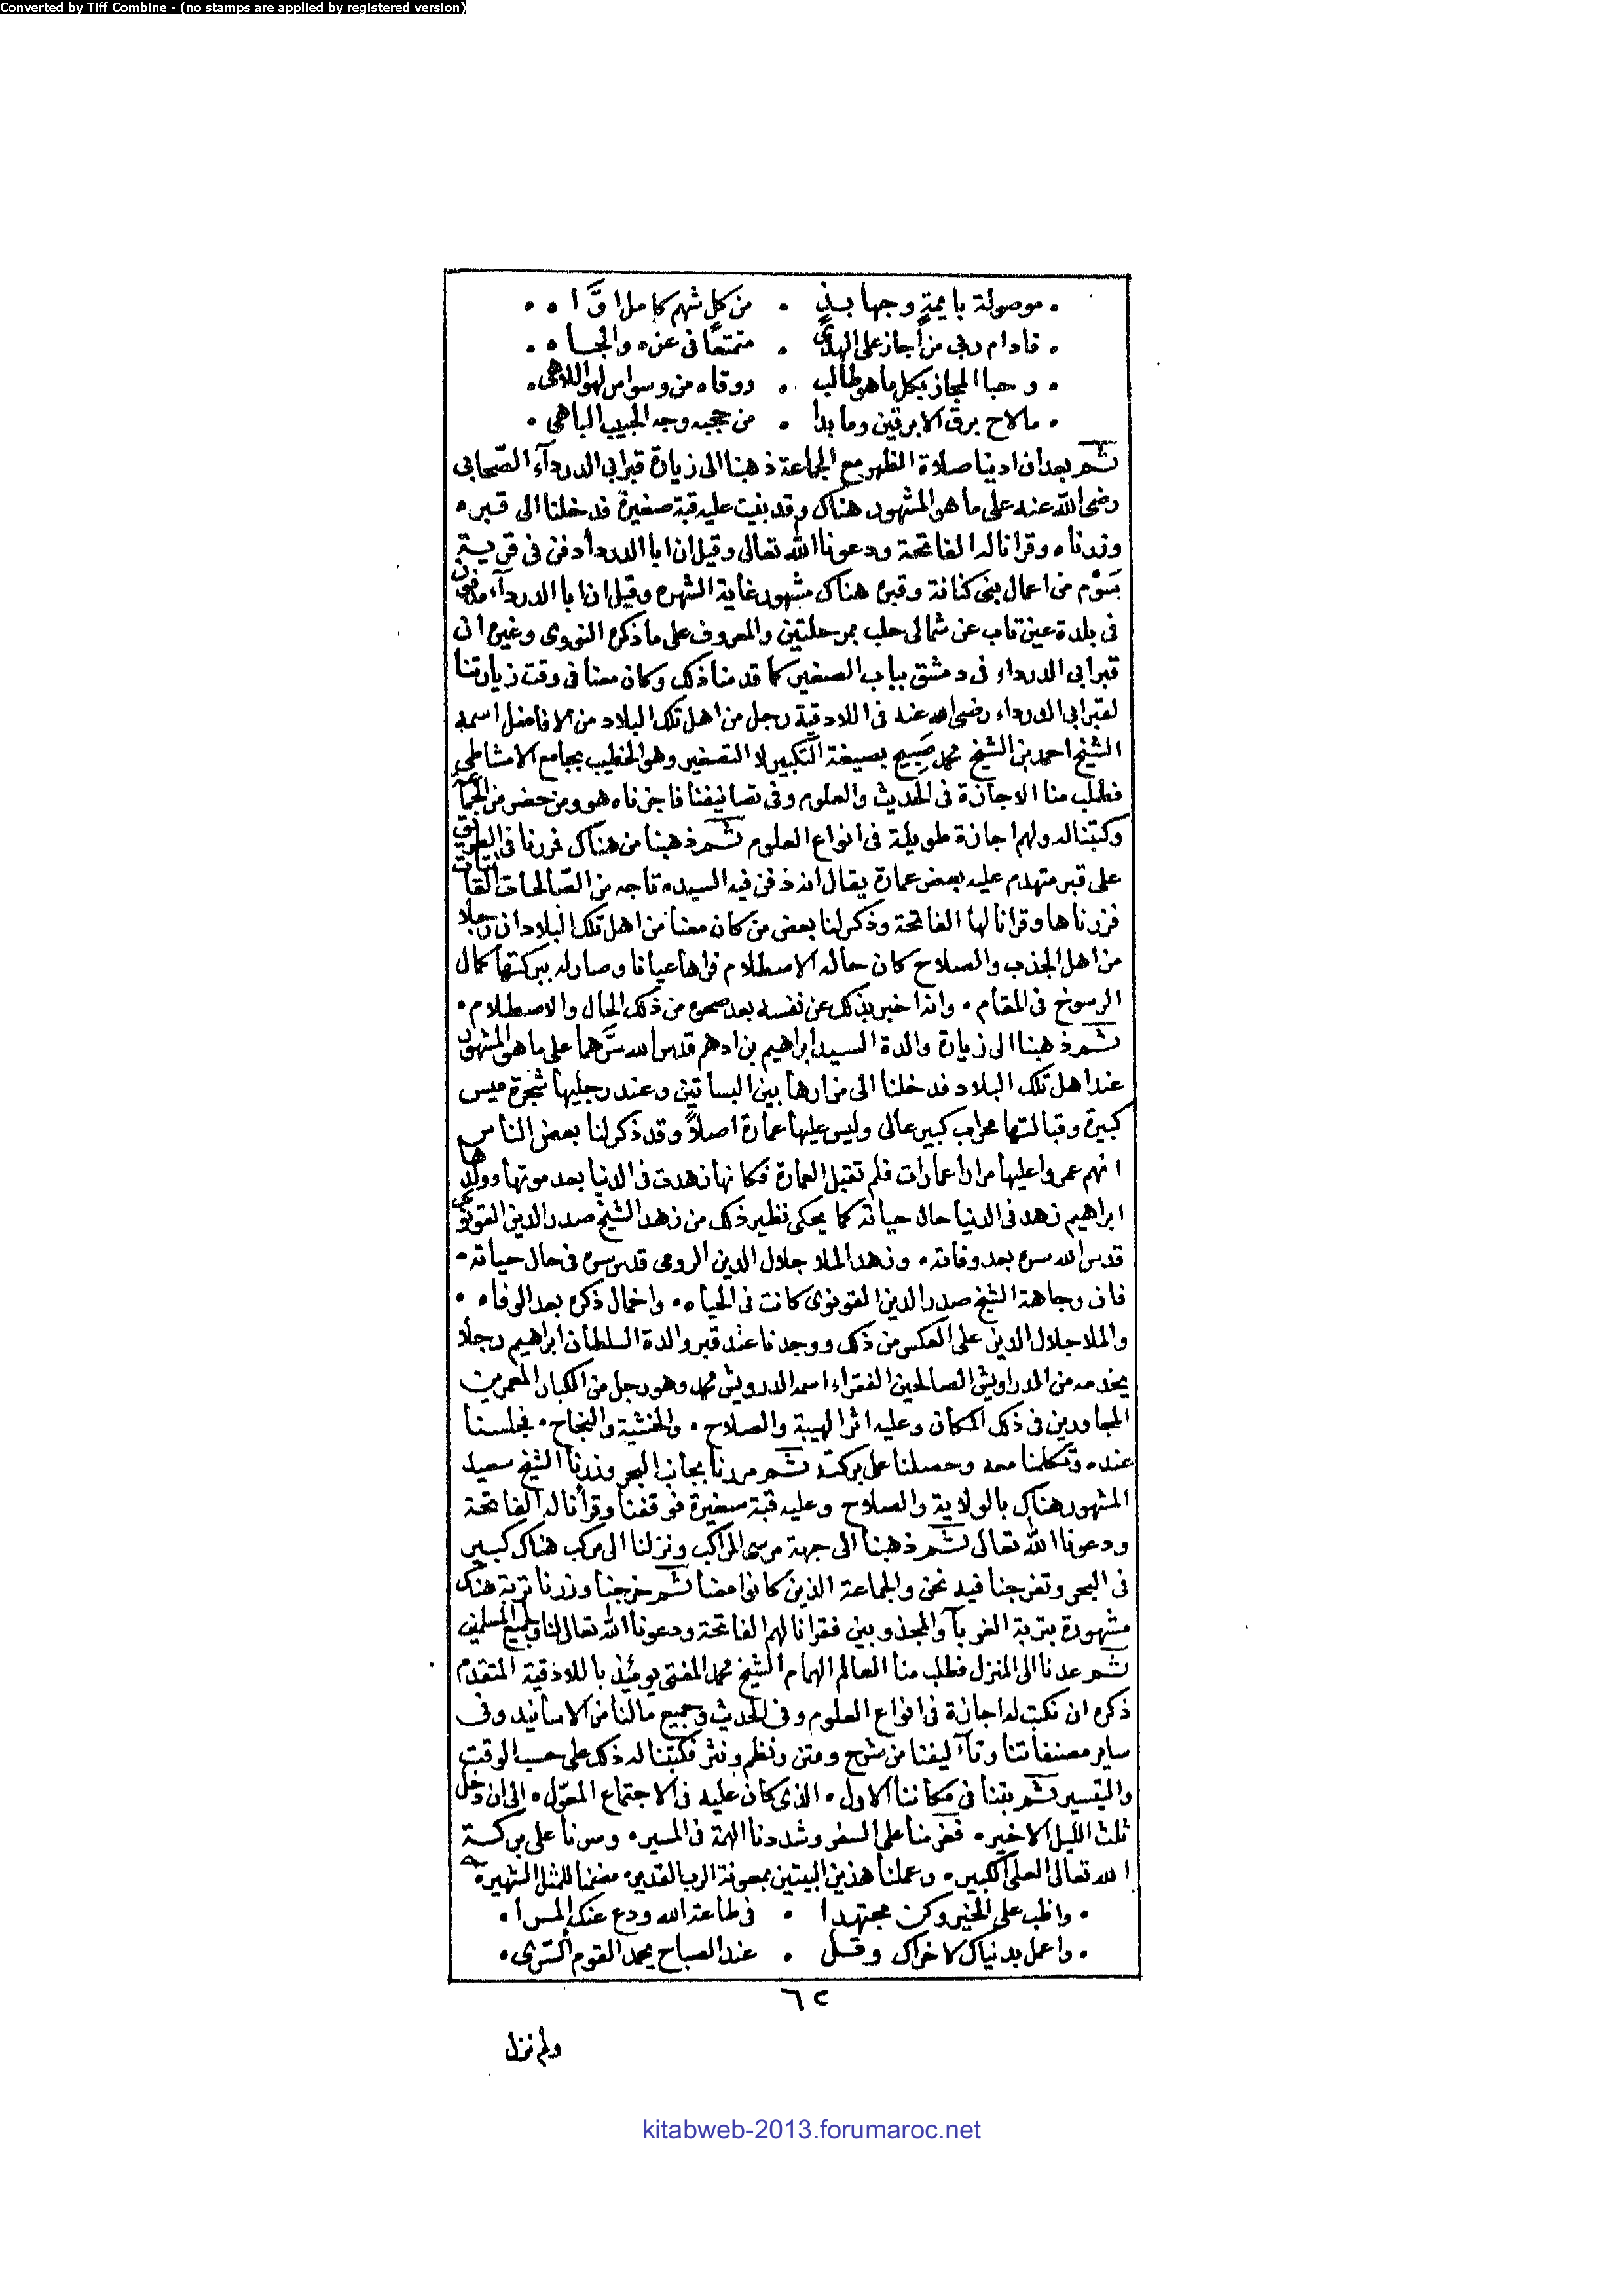 Converted by Tiff Combine - (no stamps are applied by registered version)
. موصولة بايمة وجهابذ . من كل شهم كامل اوّاه .
. فادام ربي من أجاز على الهدى . متمتعا في عزه والجاه .
. وحبا المجاز بكل ما هو طالب . ووقاه من وسواس لهو اللاهي .
. ما لاح برق الابرقين وما بدا . من حجبه وجه الحبيب الباهي .
ثم بعد ان ادينا صلاة الظهر مع الجماعة ذهبنا الى زيارة قبر ابي الدردآء الصّحابي
رضي الله عنه على ما هو المشهور هناك وقد بنيت عليه قبة صغيرة فدخلنا الى قبره
وزرناه وقرانا له الفاتحة ودعونا الله تعالى وقيل ان ابا الدردأ دفن في قرية
بسوم من اعمال بني كنانة وقبره هناك مشهور غاية الشهره وقيل ان ابا الدردآء مدفون
في بلدة عين تاب عن شمالي حلب بمرحلتين والمعروف على ما ذكره النووي وغيره ان
قبر ابي الدرداء في دمشق بباب الصغير كما قدمنا ذلك وكان معنا في وقت زيارتنا
لقبر ابي الدرداء رضي الله عنه في اللادقية رجل من اهل تلك البلاد من الافاضل اسمه
الشيخ احمد بن الشيخ محمد صَبِيح بصيغة التكبير لا التصغير وهو الخطيب بجامع الامشاطي
فطلب منا الاجازة في الحديث والعلوم وفي تصانيفنا فاجزناه هو ومن حضر من الجماعة
وكتبنا له ولهم اجازة طويلة في انواع العلوم ثم ذهبنا من هناك فمررنا في الطريق
على قبر متهدم عليه بعض عمارة يقال انه دفن فيه السيده تاجه من الصّالحات القانتات
فزرناها وقرانا لها الفاتحة وذكر لنا بعض من كان معنا من اهل تلك البلاد ان رجلا
من اهل الجذب والصلاح كان حاله الاصطلام فراها عيانا وصار له ببركتها كمال
الرسوخ في المقام . وانه اخبر بذلك عن نفسه بعد صحوه من ذلك الحال والاصطلام .
ثم ذهبنا الى زيارة والدة السيد ابراهيم بن ادهم قدس الله سّرهما على ما هو المشهور
عند اهل تلك البلاد فدخلنا الى مزارها بين البساتين وعند رجليها شجرة ميس
كبيرة وقبالتها محراب كبير عالي وليس عليها عمارة اصلاً وقد ذكر لنا بعض الناس
انهم عمروا عليها مرارا عمارات فلم تقبل العمارة فكانها زهدت في الدنيا بعد موتها وولدها
ابراهيم زهد في الدنيا حال حياته كما يحكى نظير ذلك من زهد الشيخ صدر الدين القونوي
قدس الله سره بعد وفاته . وزهد الملا جلال الدين الرومي قدس سره في حال حياته .
فان وجاهة الشيخ صدر الدين القونوي كانت في الحياه . واخمال ذكره بعد الوفاه .
والملا جلال الدين على العكس من ذلك ووجدنا عند قبر والدة السلطان ابراهيم رجلا
يخدمه من الدراويش الصالحين الفقراء اسمه الدرويش محمد وهو رجل من الكبار المعمرين
المجاورين في ذلك المكان وعليه اثر الهيبة والصلاح . والخشية والنجاح . فجلسنا
عنده وتكلمنا معه وحصلنا على بركته ثم مررنا بجانب البحر وزرنا الشيخ سعيد
المشهور هناك بالولاية والصلاح وعليه قبة صغيرة فوقفنا وقرأنا له الفاتحة
ودعونا الله تعالى ثم ذهبنا الى جهة مرسى المراكب ونزلنا الى مركب هناك كبير
في البحر وتفرجنا فيه نحن والجماعة الذين كانوا معنا ثم خرجنا وزرنا تربة هناك
مشهورة بتربة الغربآ والمجذوبين فقرانا لهم الفاتحة ودعونا الله تعالى لنا ولجميع المسلمين
ثم عدنا الى المنزل فطلب منا العالم الهمام الشيخ محمد المفتي يومئذ باللاذقية المتقدم
ذكره ان نكتب له اجازة في انواع العلوم وفي الحديث وجميع ما لنا من الاسانيد وفي
ساير مصنفاتنا وتآليفنا من شرح ومتن ونظم ونثر فكتبنا له ذلك على حسب الوقت
والتيسير ثم بتنا في مكاننا الاول . الذي كان عليه في الاجتماع المعوّل . الى ان دخل
ثلث الليل الاخير . فعزمنا على السفر وشددنا الهمة في المسير . وسرنا على بركة
الله تعالى العلي الكبير . وعملنا هذين البيتين بمعونة الرب القدير . مضمنا للمثل الشهير
. واظب على الخير وكن مجتهدا . في طاعة الله ودع عنك المرا .
. واعمل بدنياك لاخراك وقل . عند الصباح يحمد القوم السرى .
٦٢
ولم نزل
kitabweb-2013.forumaroc.net